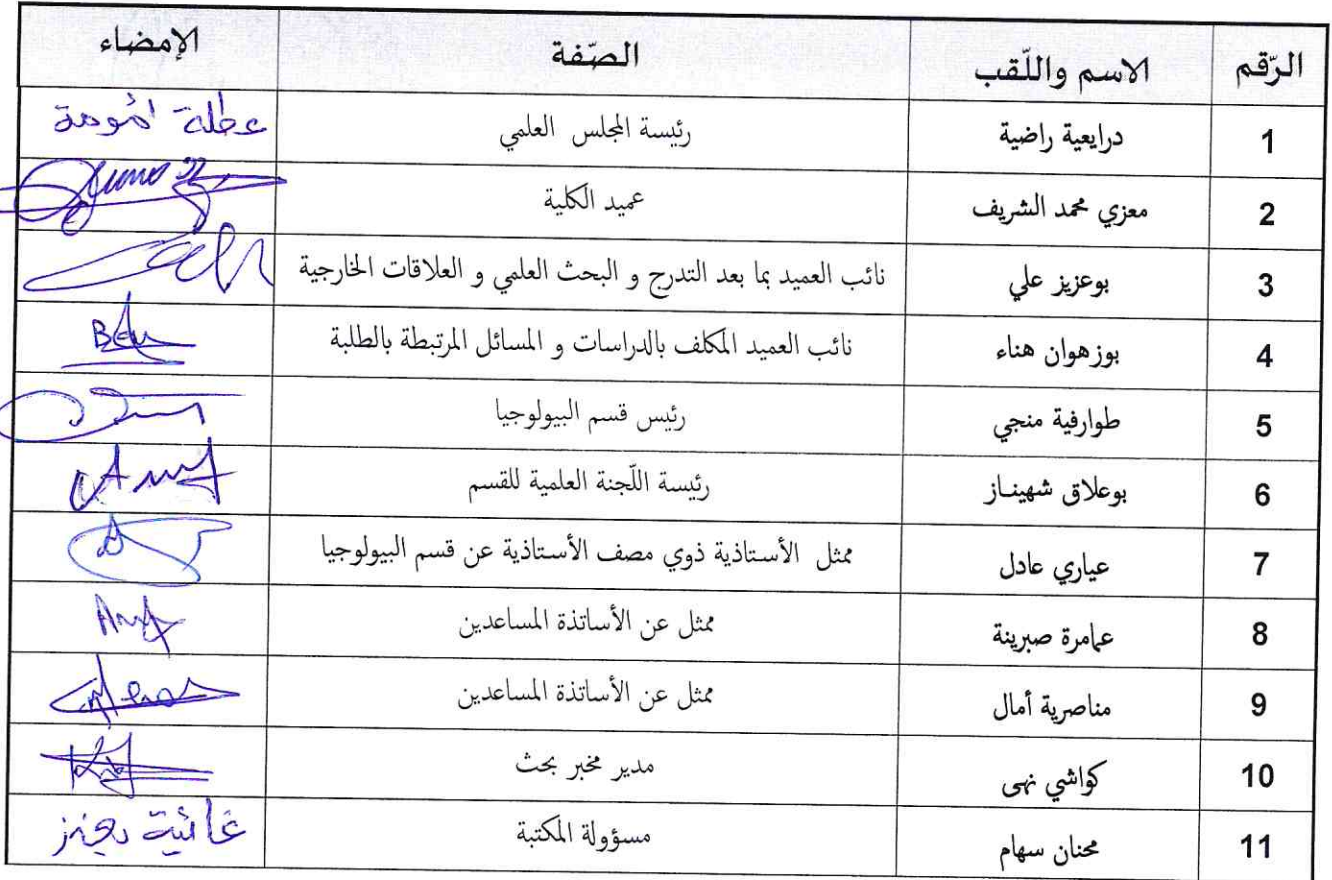 الرّقم الاسم واللّقب الصّفة الإمضاء
1 درايعية راضية رئيسة المجلس العلمي عطلة أمومة
2 معزي محمد الشريف عميد الكلية
3 بوعزيز علي نائب العميد بما بعد التدرج و البحث العلمي و العلاقات الخارجية
4 بوزهوان هناء نائب العميد المكلف بالدراسات و المسائل المرتبطة بالطلبة
5 طوارفية منجي رئيس قسم البيولوجيا
6 بوعلاق شهينـاز رئيسة اللّجنة العلمية للقسم
7 عياري عادل ممثل الأستاذية ذوي مصف الأستاذية عن قسم البيولوجيا
8 عمامرة صبرينة ممثل عن الأساتذة المساعدين
9 مناصرية أمال ممثل عن الأساتذة المساعدين
10 كواشي نهى مدير مخبر بحث
11 محنان سهام مسؤولة المكتبة غائبة